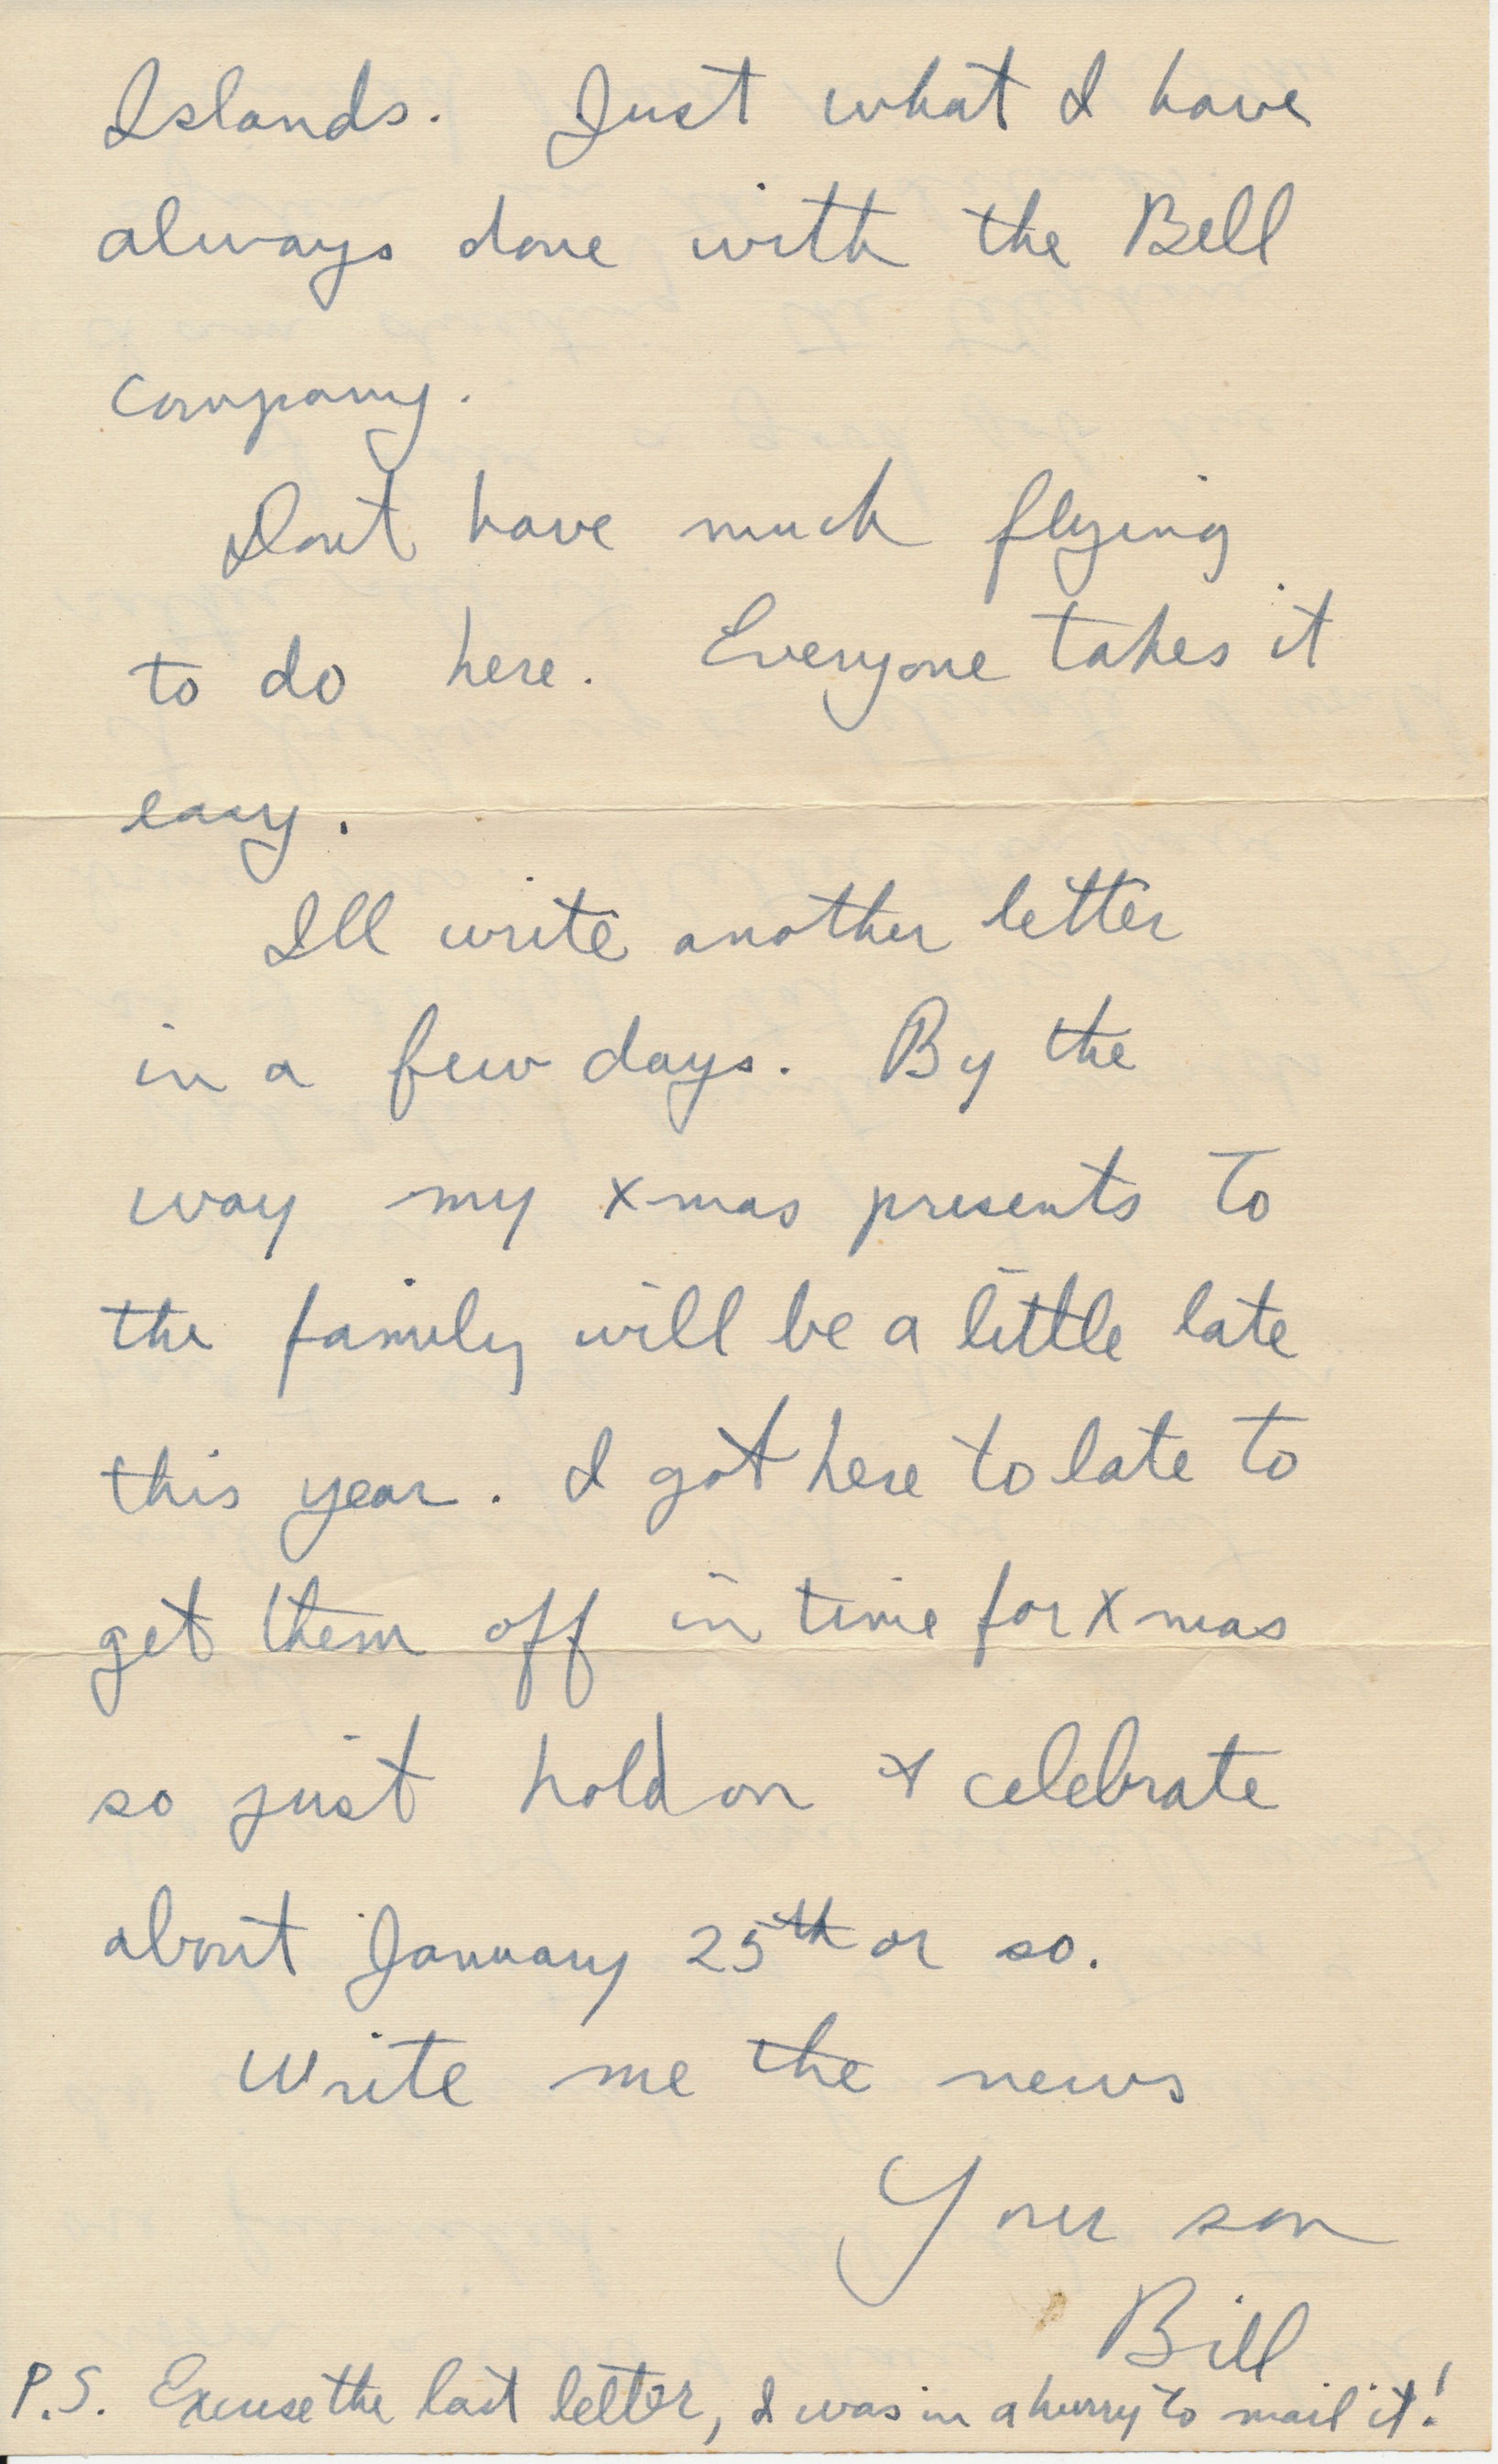 Islands. Just what I have
always done with the Bell
company.
Dont have much flying
to do here. Everyone takes it
easy.
Ill write another letter
in a few days. By the
way my xmas presents to
the family will be a little late
this year. I got here to late to
get them off in time for xmas
so just hold on & celebrate
about January 25th or so.
Write me the news
Your son
Bill
P.S. Excuse the last letter, I was in a hurry to mail it!